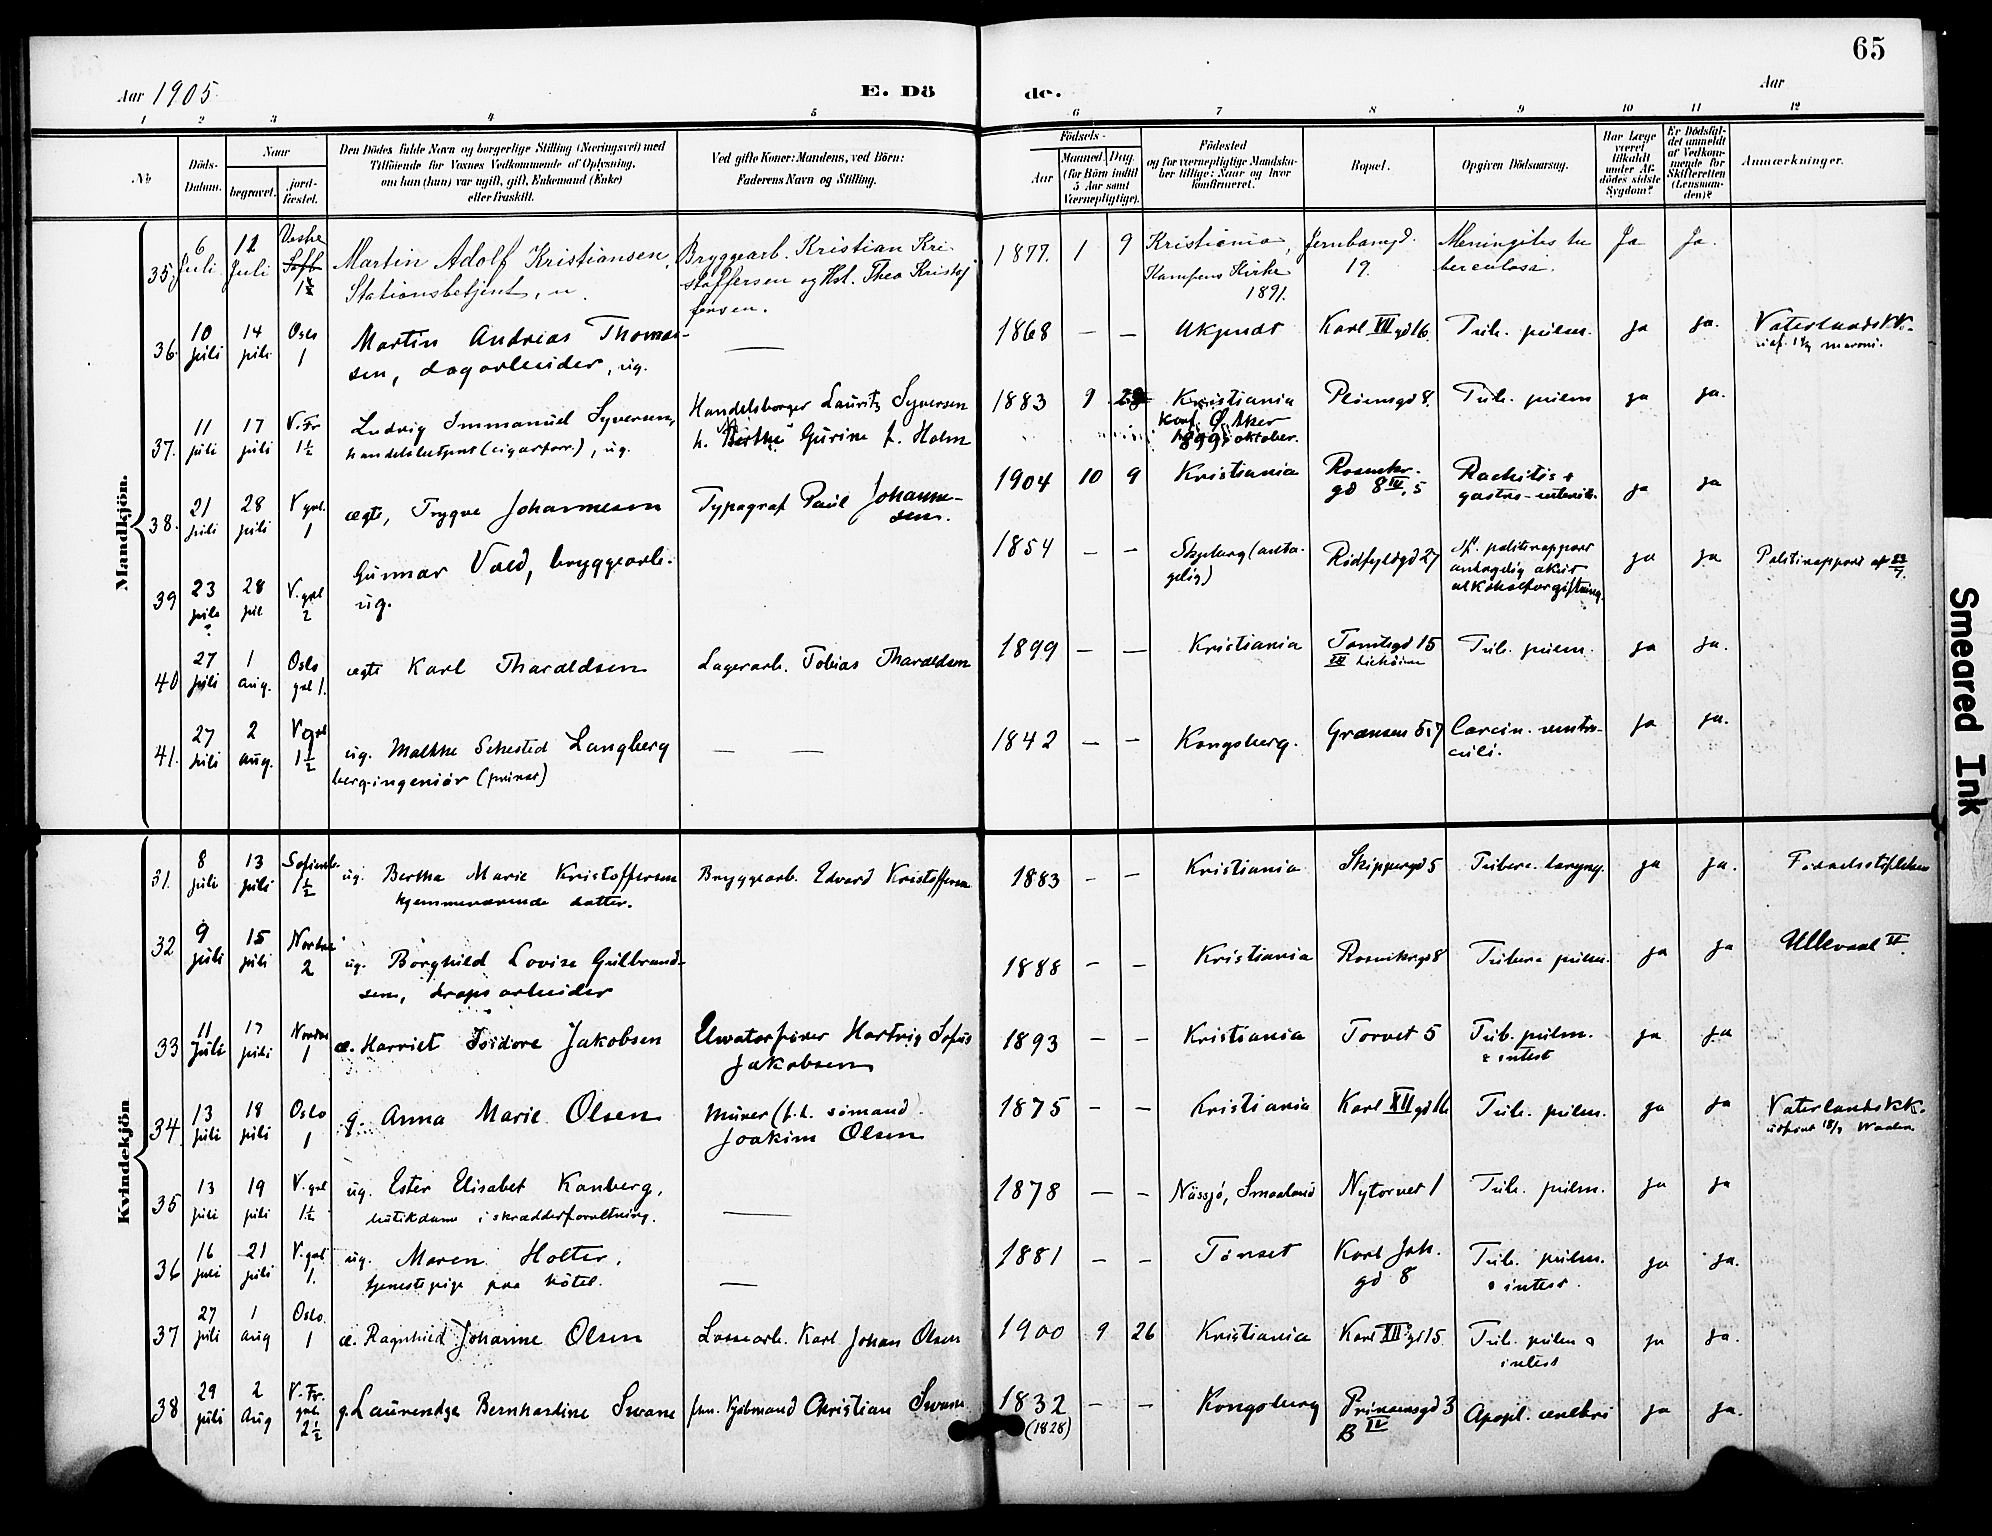 65
Aar 1905
E. Dö
de.
Aar
1 2 3 4 5 6 7 8 9 10 11 12
No
Döds-Datum.
Naar
begravet.
jord-fæstet.
Den Dödes fulde Navn og borgerlige Stilling (Næringsvei) med
Tilföiende for Voxnes Vedkommende af Oplysning,
om han (hun) var ugift, gift, Enkemand (Enke)
eller fraskilt.
Ved gifte Koner: Mandens, ved Börn:
Faderens Navn og Stilling.
Födsels-
Aar
Maaned Dag
(for Börn indtil
5 Aar samt
Værnepligtige).
Födested
og for værnepligtige Mandska-
ber tillige: Naar og hvor
konfirmeret.
Bopæl.
Opgiven Dödsaarsag.
Har Læge
været
tilkaldt
under Af-
dödes sidste
Sygdom?
Er Dödsfal-
det anmeldt
af Vedkom-
mende for
Skifteretten
(Lensman-
den)?
Anmærkninger.
Mandkjön.
35. 6 Juli 12 Juli Vestre 1½ Martin Adolf Kristiansen, Bryggearb. Kristian Kri- 1877. 1 9 Kristiania, Jernbanegd. Meningites tu Ja Ja.
Stationsbetjent, u. stoffersen og Hst. Thea Kristof Kampens Kirke 19. berculosa.
fersen. 1891.
36. 10 juli 14 juli Oslo 1 Martin Andreas Thomas- — 1868 — — Ukjendt Karl XII gd 16. Tub. pulm. ja ja. Vaterlands KK.
sen, dagarbeider, ug.
37. 11 juli 17 juli V. Fr 1½ Ludvig Immanuel Syversen, Handelsborger Lauritz Syversen 1883 9 Kristiania Pløensgd 8. Tub. pulm ja ja.
handelsbetjent (cigarforr.), ug. h. Birthe Gurine f. Holm Konf. Ø. Aker
1899, oktober.
38. 21 juli 28 juli V grl. 1 ægte, Trygve Johannesen Typograf Paul Johanne- 1904 10 9 Kristiania Rosenkr. Rachitis & ja ja
sen. gd 8 IV, 5 gastro-enterit.
39 23 juli ? 28 jul V. grl 2 Gunnar Vold, bryggearb. 1854 — — Skjeberg (anta- Rødfyldgd 27 if. politirapport ja ja Politirapport af 23/7.
ug. gelig) antagelig akut
alkoholforgiftning.
40 27 juli 1 aug. Oslo grl 1. ægte Karl Tharaldsen Lagerarb. Tobias Tharaldsen 1899 — — Kristiania Tomtegd 15 Tub. pulm. ja ja.
41. 27 juli 2 aug. V grl 1½ ug. Malthe Sehested Langberg — — 1842 — — Kongsberg. Grænsen 5, 7 Carcin. ventri- ja ja.
berg-ingeniør (privat) culi.
Kvindekjön
31. 8 juli 13 juli Sofienb. 1½ ug. Bertha Marie Kristoffersen Bryggearb. Edvard Kristoffersen 1883 — — Kristiania Skippergd 5 Tuberc. laryng. ja ja. Fødselsstiftelsen
hjemmeværende datter.
32 9 juli 15 juli Nordre 2 ug. Borghild Lovise Gulbrand- 1888 — — Kristiania Rosenkrgd 8 Tuberc pulm. ja ja Ullevaal VI.
sen, drops arbeider
33 11 Juli 17 juli Nordre 1 æ. Harriet Isidore Jakobsen Elevatorfører Hartvig Sofus 1893 — — Kristiania Torvet 5 Tub. pulm. ja ja
Jakobsen & intest
34 13 juli 18 juli Oslo 1 g. Anna Marie Olsen Murer (f.t. sømand) 1875 — — Kristiania Karl XII gd 16 Tub. pulm. ja ja Vaterlands KK.
Joakim Olsen
35 13 juli 19 juli V. grl 1½ ug. Ester Elisabet Kanberg, — 1878 — — Nässjö, Smaaland Nytorvet 1 Tub. pulm. ja ja
butikdame i skrædderforretning.
36 16 juli 21 juli V. grl 1. ug. Maren Holter, — 1881 — — Tønset Karl Joh. Tub. pulm. ja ja.
tjenestepige paa hotel. gd 8 & intest.
37 27 juli 1 aug Oslo. 1 æ. Ragnhild Johanne Olsen Lossearb. Karl Johan Olsen 1900 9 26 Kristiania Karl XII gd 15. Tub. pulm & ja ja.
intest
38 29 juli 2 Aug V. Fr. grl. 2½ g. Laurendze Bernhardine Swane fhn. Kjøbmand Christian Swane 1832 — — Kongsberg Prinsensgd 3 Apopl. cerebri ja ja.
(1828) B IV
Smeared Ink